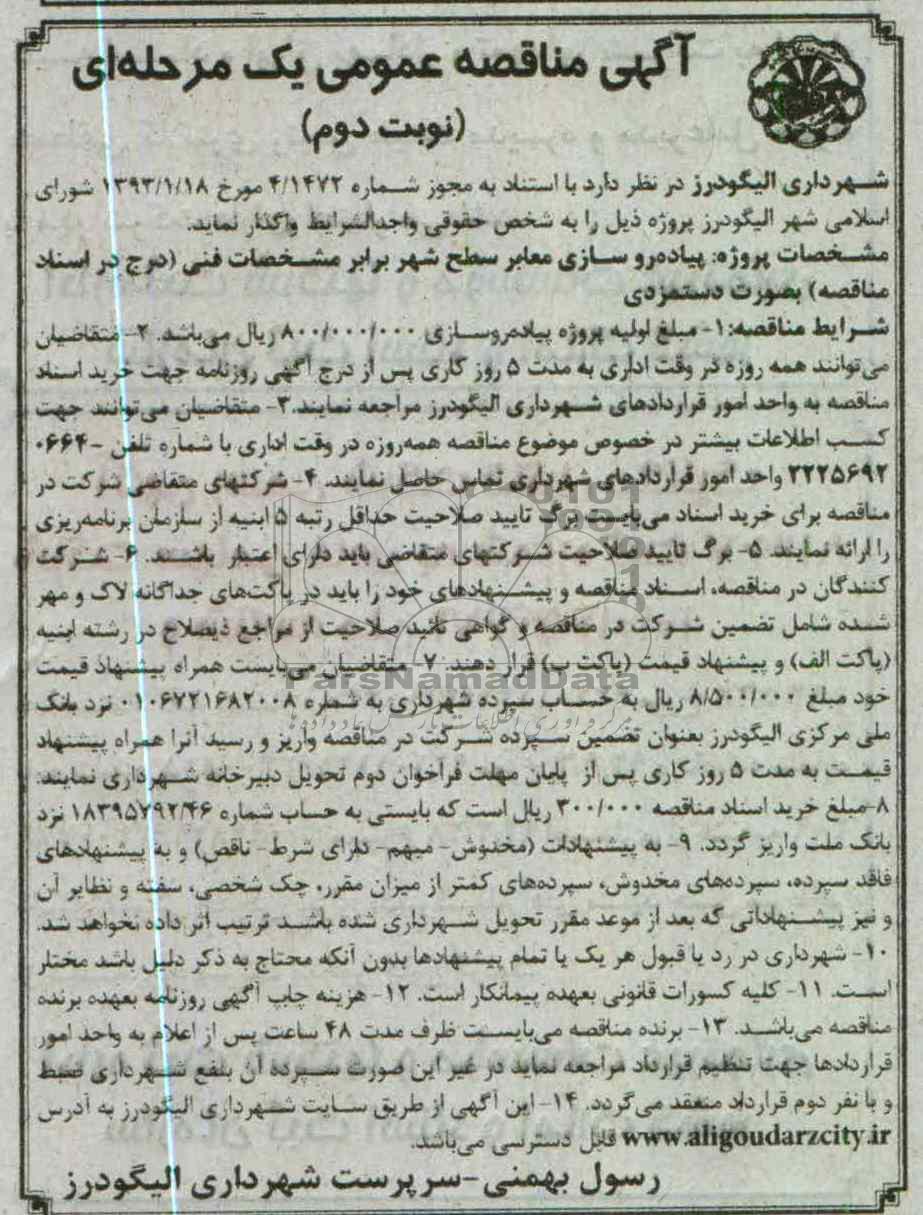 آگهی مناقصه عمومی یک مرحله‌ای
(نوبت دوم)
شهرداری الیگودرز در نظر دارد با استناد به مجوز شماره ۴/۱۴۷۲ مورخ ۱۳۹۳/۱/۱۸ شورای
اسلامی شهر الیگودرز پروژه ذیل را به شخص حقوقی واجدالشرایط واگذار نماید.
مشخصات پروژه: پیاده‌رو سازی معابر سطح شهر برابر مشخصات فنی (درج در اسناد
مناقصه) بصورت دستمزدی
شرایط مناقصه: ۱- مبلغ اولیه پروژه پیاده‌روسازی ۸۰۰/۰۰۰/۰۰۰ ریال می‌باشد. ۲- متقاضیان
می‌توانند همه روزه در وقت اداری به مدت ۵ روز کاری پس از درج آگهی روزنامه جهت خرید اسناد
مناقصه به واحد امور قراردادهای شهرداری الیگودرز مراجعه نمایند. ۳- متقاضیان می‌توانند جهت
کسب اطلاعات بیشتر در خصوص موضوع مناقصه همه‌روزه در وقت اداری با شماره تلفن ۰۶۶۴-
۲۲۲۵۶۹۲ واحد امور قراردادهای شهرداری تماس حاصل نمایند. ۴- شرکتهای متقاضی شرکت در
مناقصه برای خرید اسناد می‌بایست برگ تایید صلاحیت حداقل رتبه ۵ ابنیه از سازمان برنامه‌ریزی
را ارائه نمایند. ۵- برگ تایید صلاحیت شرکتهای متقاضی باید دارای اعتبار باشند. ۶- شرکت
کنندگان در مناقصه، اسناد مناقصه و پیشنهادهای خود را باید در پاکت‌های جداگانه لاک و مهر
شده شامل تضمین شرکت در مناقصه و گواهی تائید صلاحیت از مراجع ذیصلاح در رشته ابنیه
(پاکت الف) و پیشنهاد قیمت (پاکت ب) قرار دهند. ۷- متقاضیان می‌بایست همراه پیشنهاد قیمت
ParsNamadData
خود مبلغ ۸/۵۰۰/۰۰۰ ریال به حساب سپرده شهرداری به شماره ۰۱۰۶۷۲۱۶۸۲۰۰۸ نزد بانک
ملی مرکزی الیگودرز بعنوان تضمین سپرده شرکت در مناقصه واریز و رسید آنرا همراه پیشنهاد
قیمت به مدت ۵ روز کاری پس از پایان مهلت فراخوان دوم تحویل دبیرخانه شهرداری نمایند.
۸-مبلغ خرید اسناد مناقصه ۳۰۰/۰۰۰ ریال است که بایستی به حساب شماره ۱۸۳۹۵۷۹۲/۴۶ نزد
بانک ملت واریز گردد. ۹- به پیشنهادات (مخدوش- مبهم- دارای شرط- ناقص) و به پیشنهادهای
فاقد سپرده، سپرده‌های مخدوش، سپرده‌های کمتر از میزان مقرر، چک شخصی، سفته و نظایر آن
و نیز پیشنهاداتی که بعد از موعد مقرر تحویل شهرداری شده باشد ترتیب اثر داده نخواهد شد.
۱۰- شهرداری در رد یا قبول هر یک یا تمام پیشنهادها بدون آنکه محتاج به ذکر دلیل باشد مختار
است. ۱۱- کلیه کسورات قانونی بعهده پیمانکار است. ۱۲- هزینه چاپ آگهی روزنامه بعهده برنده
مناقصه می‌باشد. ۱۳- برنده مناقصه می‌بایست ظرف مدت ۴۸ ساعت پس از اعلام به واحد امور
قراردادها جهت تنظیم قرارداد مراجعه نماید در غیر این صورت سپرده آن بنفع شهرداری ضبط
و با نفر دوم قرارداد منعقد می‌گردد. ۱۴- این آگهی از طریق سایت شهرداری الیگودرز به آدرس
www.aligoudarzcity.ir قابل دسترسی می‌باشد.
رسول بهمنی-سرپرست شهرداری الیگودرز